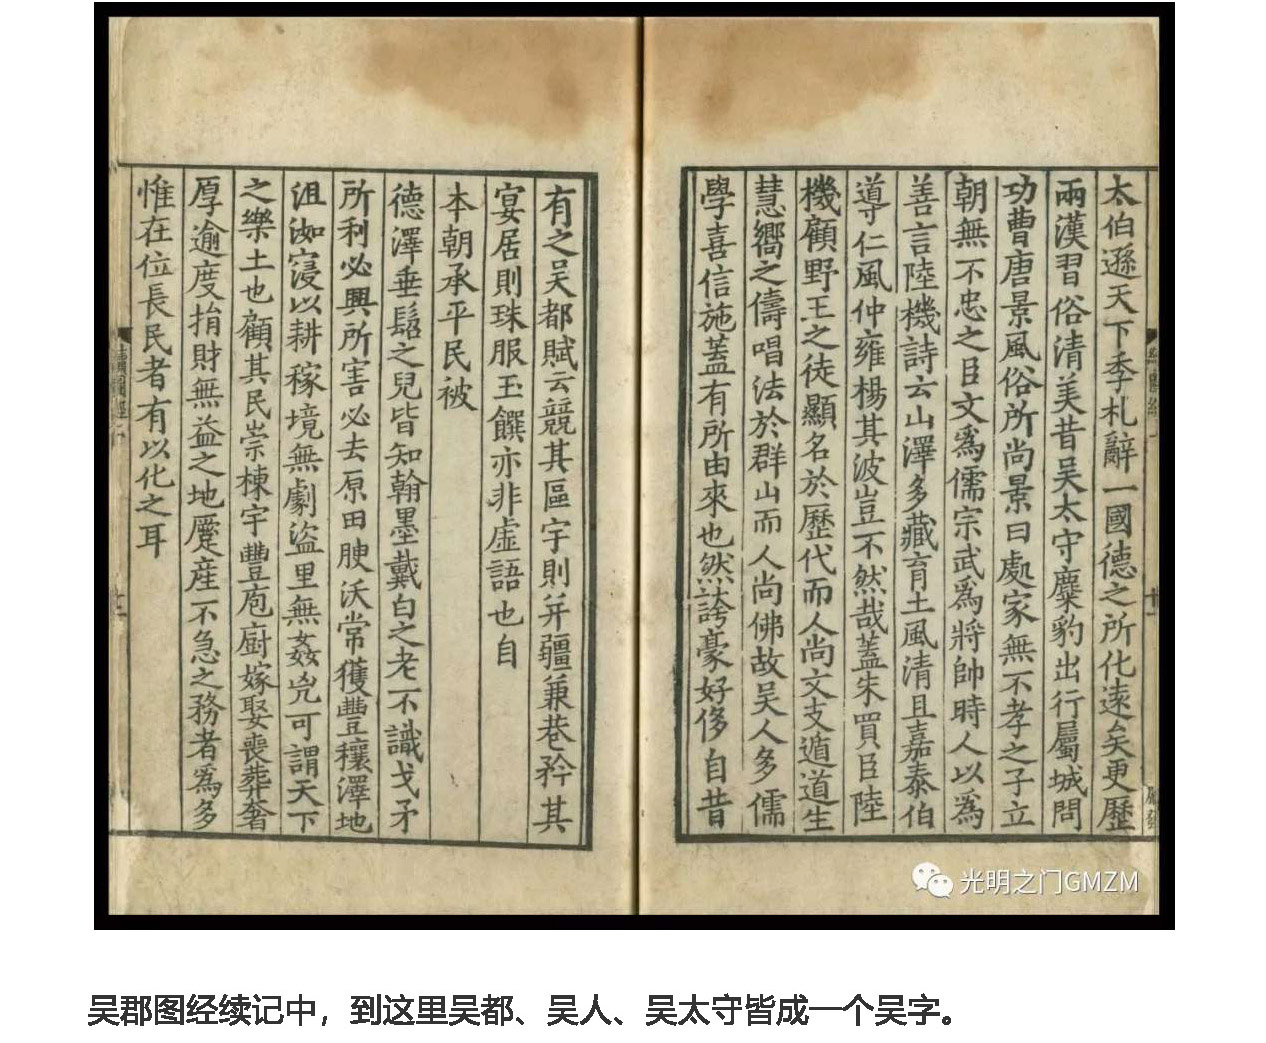 太伯遜天下季札辭一國德之所化遠矣更歷
兩漢習俗清美昔吴太守麋豹出行屬城問
功曹唐景風俗所尚景曰處家無不孝之子立
朝無不忠之臣文爲儒宗武爲將帥時人以爲
善言陸機詩云山澤多藏育土風清且嘉泰伯
導仁風仲雍楊其波豈不然哉蓋朱買臣陸
機顧野王之徒顯名於歷代而人尚文支遁道生
慧嚮之儔唱法於群山而人尚佛故吴人多儒
學喜信施蓋有所由來也然誇豪好侈自昔
有之吴都賦云競其區宇則并疆兼巷矜其
宴居則珠服玉饌亦非虚語也自
本朝承平民被
德澤垂髫之兒皆知翰墨戴白之老不識戈矛
所利必興所害必去原田腴沃常獲豐穰澤地
沮洳寖以耕稼境無劇盜里無姦兇可謂天下
之樂土也顧其民崇棟宇豐庖厨嫁娶喪葬奢
厚逾度捐財無益之地蹷産不急之務者為多
惟在位長民者有以化之耳
光明之门GMZM
吴郡图经续记中，到这里吴都、吴人、吴太守皆成一个吴字。